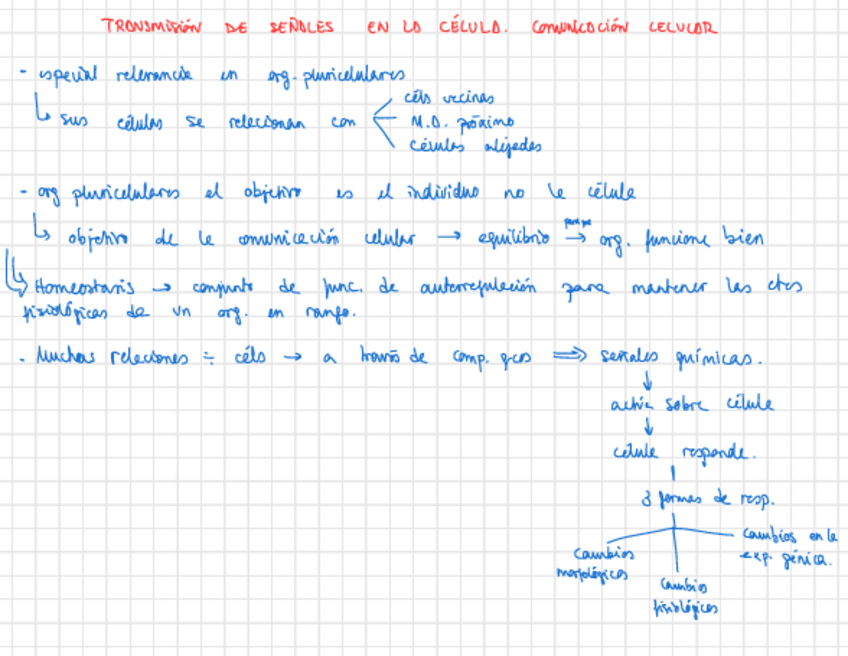 TRANSMISIÓN DE SEÑALES EN LA CÉLULA. COMUNICACIÓN CELULAR
- especial relevancia en org. pluricelulares
↳ sus células se relacionan con
céls vecinas
M.O. próximo
células alejadas
- org pluricelulares el objetivo es el individuo no la célula
↳ objetivo de la comunicación celular → equilibrio → para que org. funcione bien
↳ Homeostasis → conjunto de func. de autorregulación para mantener las ctes
fisiológicas de un org. en rango.
- Muchas relaciones ÷ céls → a través de comp. qcos ⇒ señales químicas.
↓
actúa sobre célula
↓
célula responde.
3 formas de resp.
cambios morfológicos
cambios fisiológicos
cambios en la exp. génica.